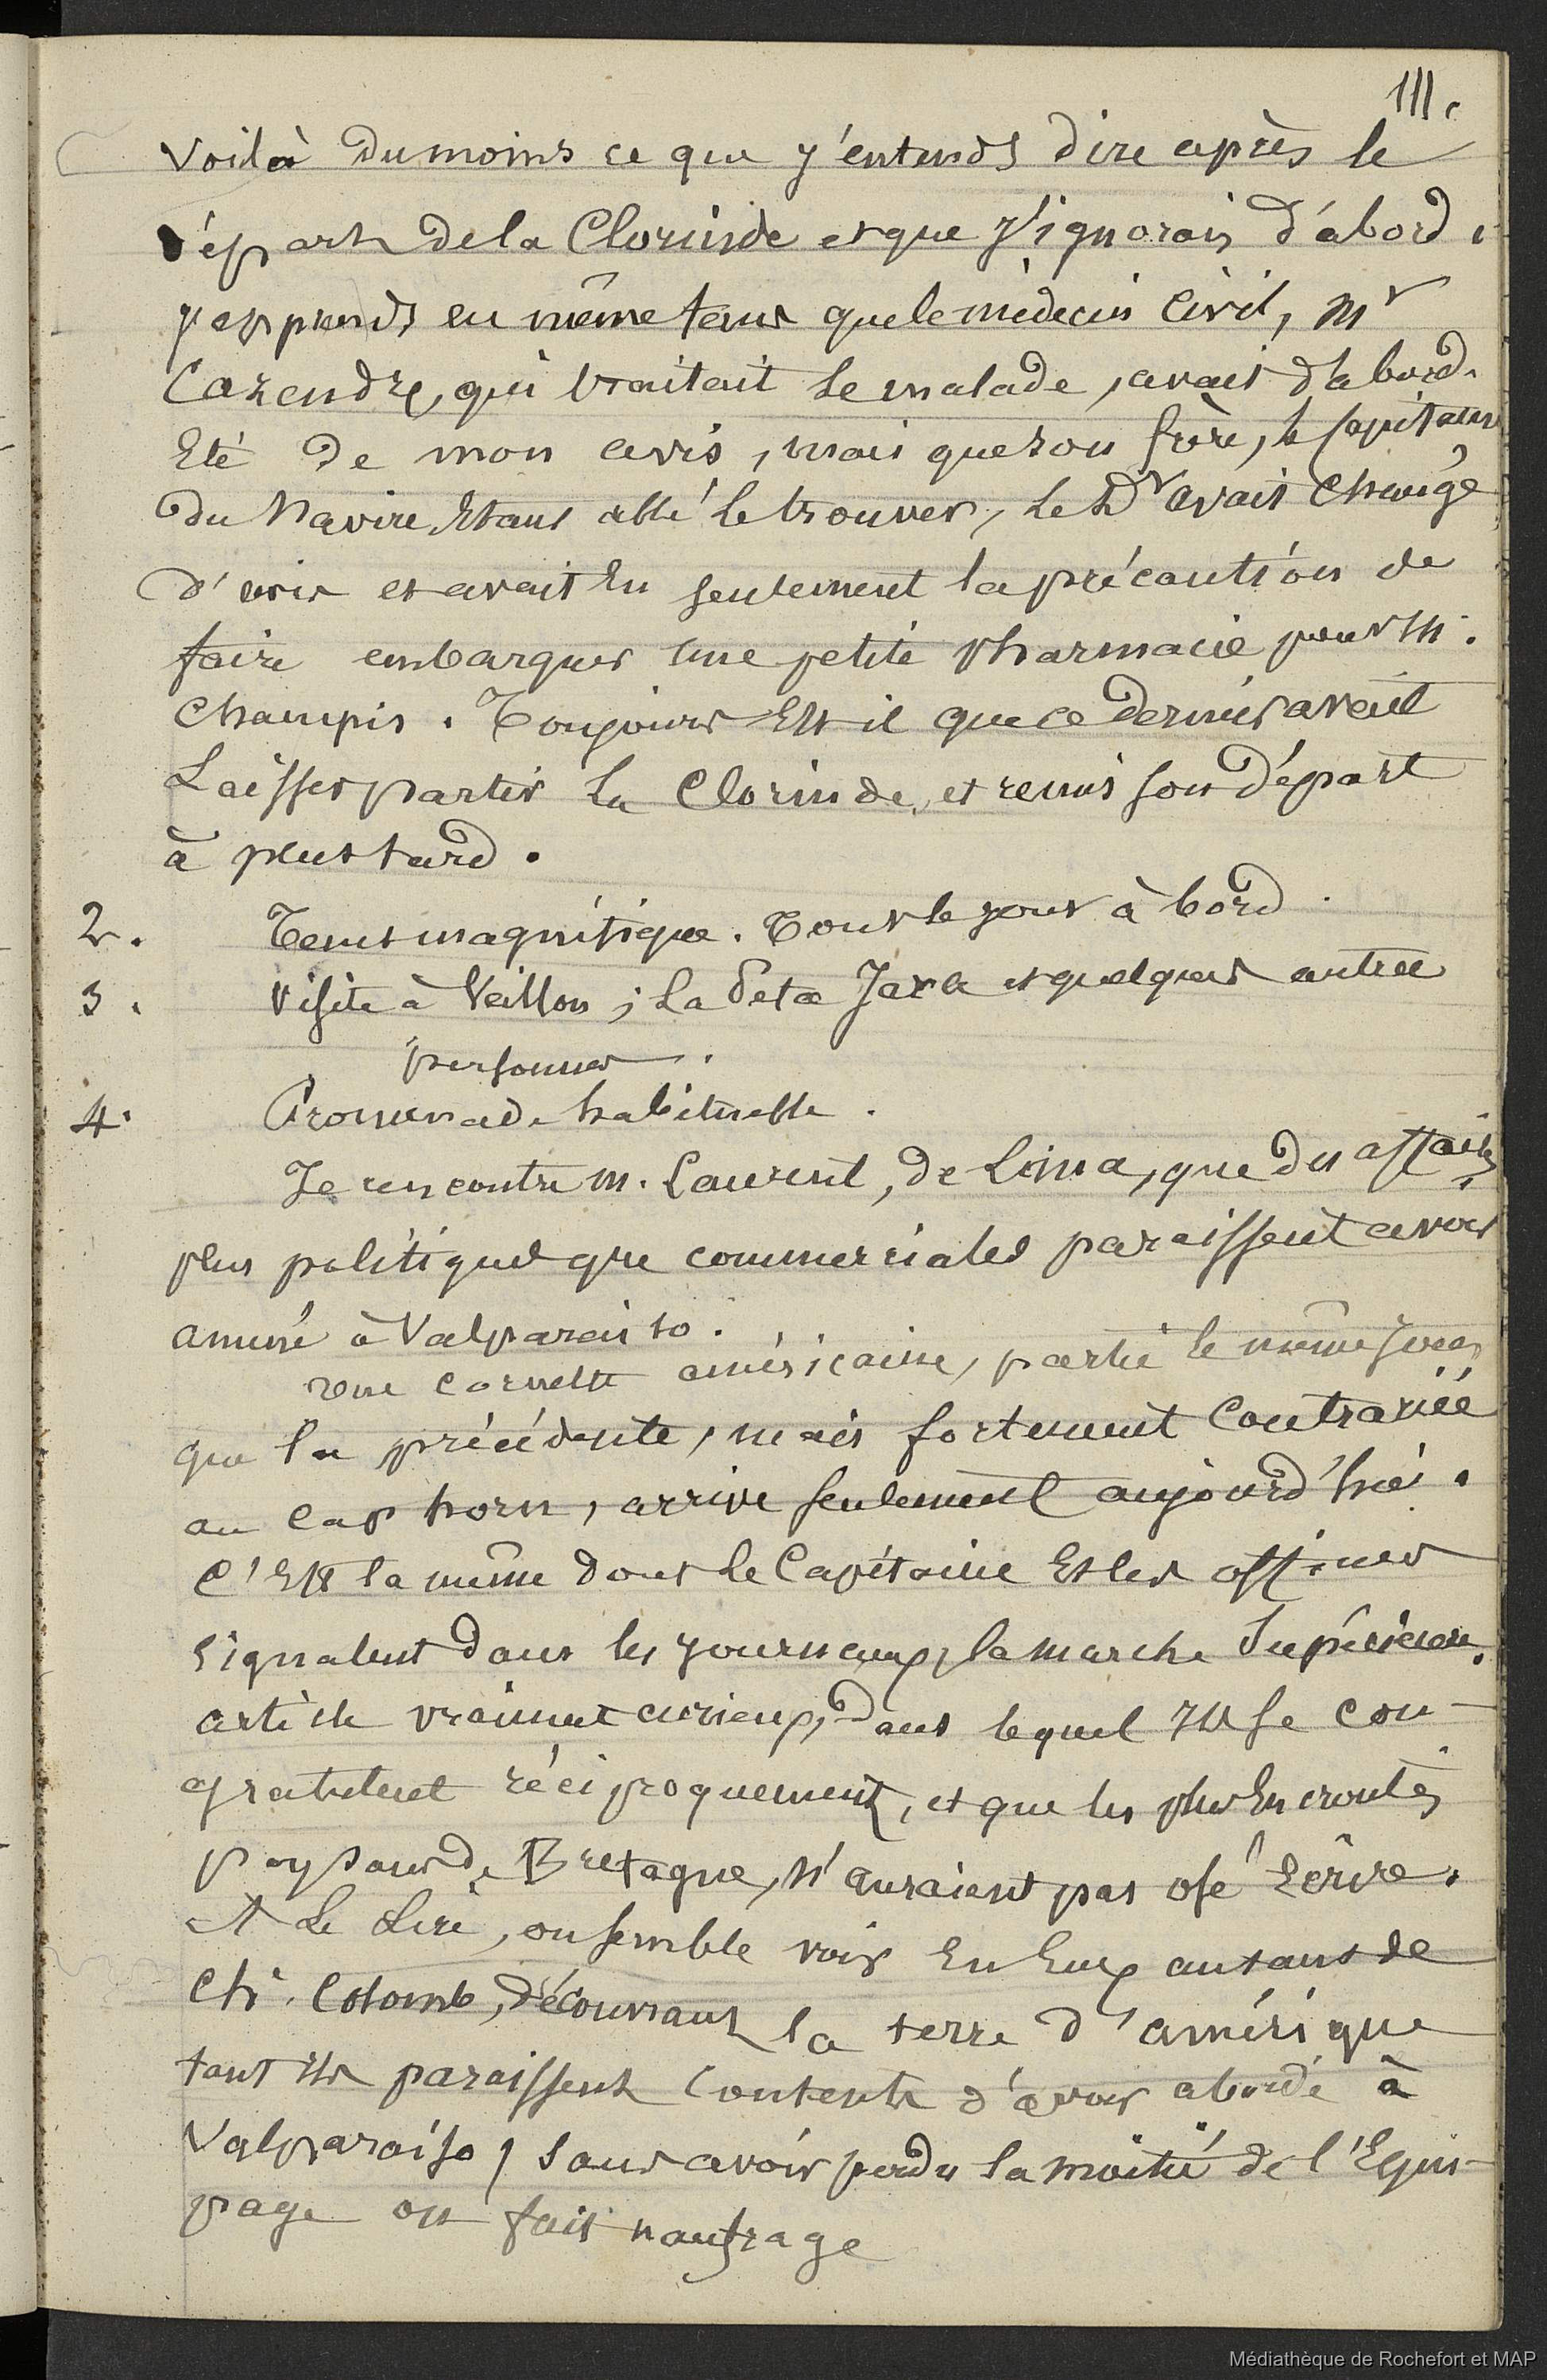 111.
Voilà du moins ce que j'entends dire après le
départ de la Clorinde et que j'ignorais d'abord.
j'apprends en même tems que le médecin civil, Mr
Cazendre, qui traitait le malade, avait d'abord.
Eté de mon avis, mais que son frère, le Capitaine
du Navire Etant allé le trouver, le Dr avait changé
d'avis et avait Eu seulement la précaution de
faire embarquer une petite pharmacie pour M.
Champis. Toujours Est il que ce dernier avait
Laisser partir La Clorinde, et remis son départ
à plus tard.
2. Tems magnifique. Tout le jour à bord.
3. Visite à Veillon ; La Peta Jara et quelques autres
personnes.
4. Promenade habituelle.
Je rencontre M. Laurent, de Lima, que des affaires
plus politiques que commerciales paraissent avoir
amené à Valparaiso.
Une corvette américaine, partie le même jour
que la précédente, mais fortement contrariée
au cap horn, arrive seulement aujourd'hui.
C'Est la même dont le Capitaine Et les officiers
signalent dans les journaux, la marche Supérieure.
article vraiment curieux, dans lequel Ils se con-
gratulent réciproquement, et que les plus Encroutés
paysans de Bretagne, n'auraient pas osé Ecrire.
A Le Lire, on semble voir En Eux autant de
Ch. Colomb, découvrant la terre d'amérique
tant Ils paraissent Contents d'avoir abordé à
Valparaiso, sans avoir perdu la moitié de l'Equi-
page ou fait naufrage
Médiathèque de Rochefort et MAP